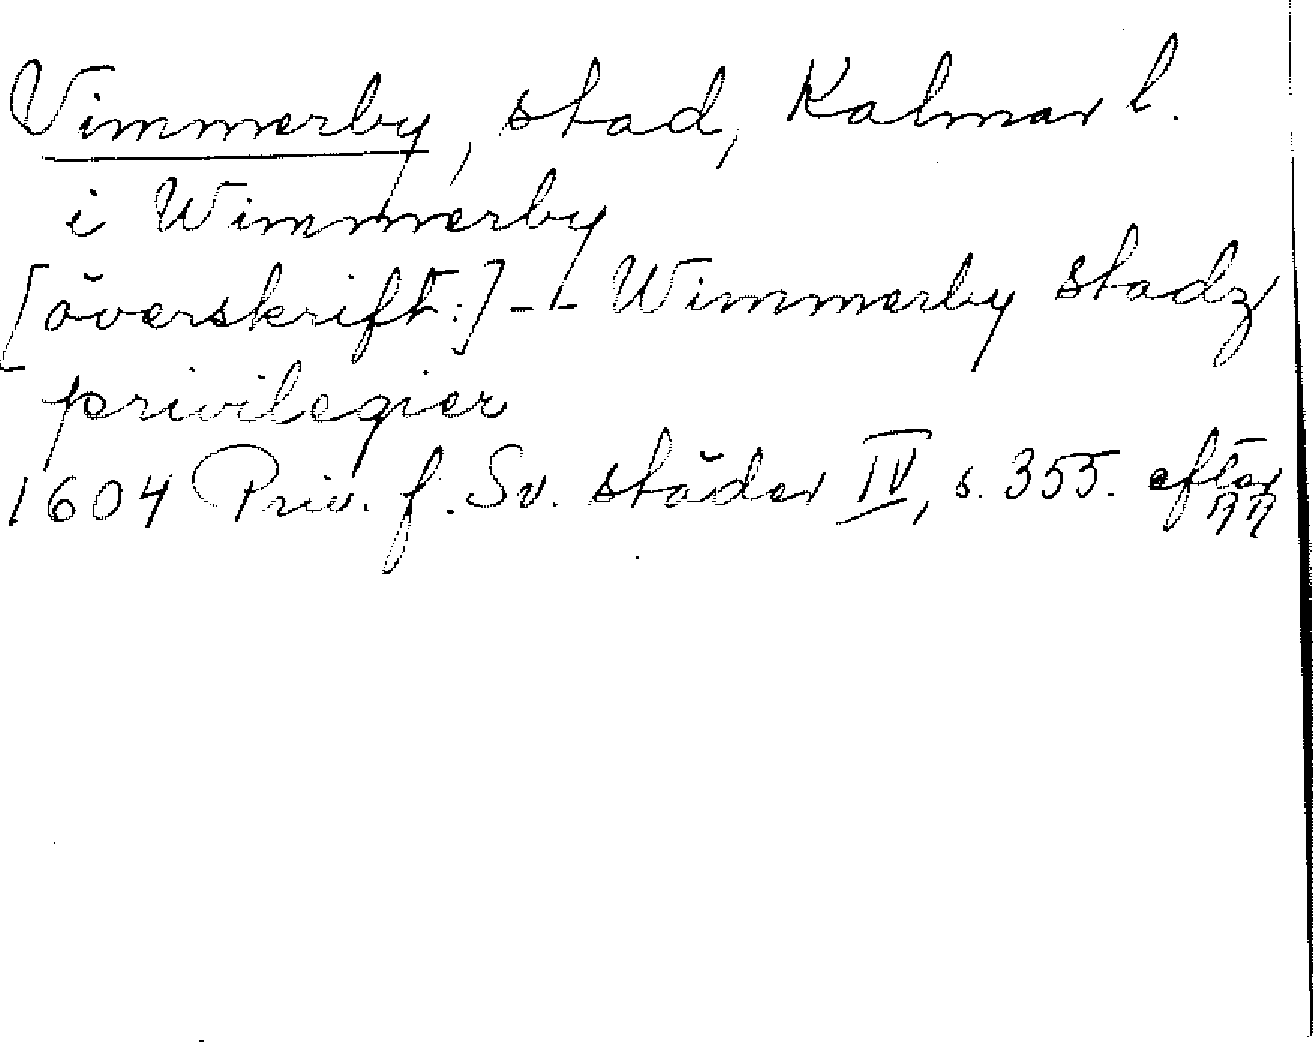 Vimmerby, stad, Kalmar l.
i Wimmerby
[överskrift:] - - Wimmerby stadz
privilegier
1604 Priv. f. Sv. städer IV, s. 355. efter